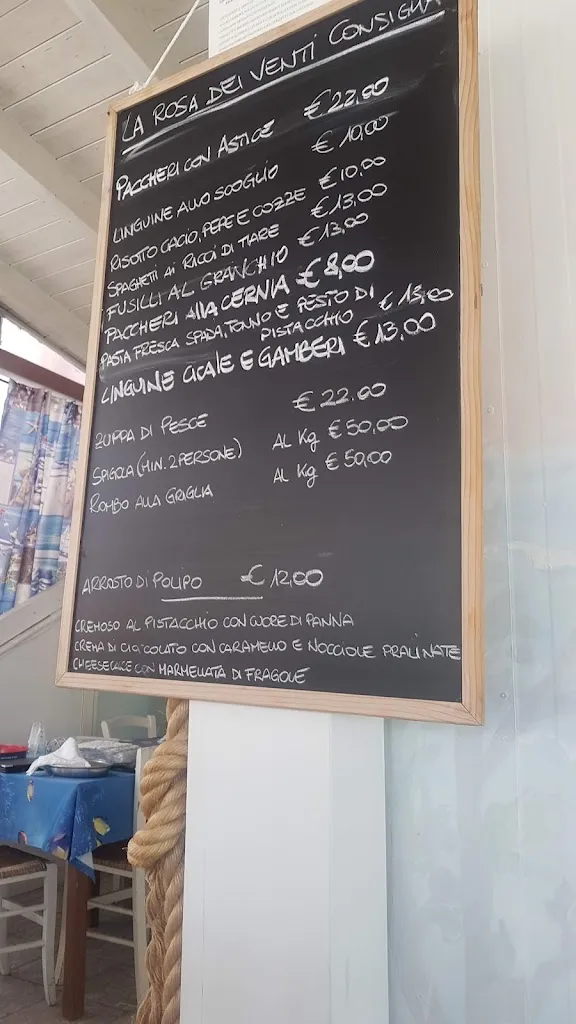 LA ROSA DEI VENTI CONSIGLIA
PACCHERI CON ASTICE € 22,00
LINGUINE ALLO SCOGLIO € 10,00
RISOTTO CACIO, PEPE E COZZE € 10,00
SPAGHETTI AI RICCI DI MARE € 13,00
FUSILLI AL GRANCHIO € 13,00
PACCHERI ALLA CERNIA € 8,00
PASTA FRESCA SPADA, TONNO E PESTO DI € 13,00
PISTACCHIO
LINGUINE CICALE E GAMBERI € 13,00
ZUPPA DI PESCE € 22.00
SPIGOLA (MIN. 2 PERSONE) AL Kg € 50,00
ROMBO ALLA GRIGLIA AL Kg € 50,00
ARROSTO DI POLIPO € 12,00
CREMOSO AL PISTACCHIO CON CUORE DI PANNA
CREMA DI CIOCCOLATO CON CARAMELLO E NOCCIOLE PRALINATE
CHEESECAKE CON MARMELLATA DI FRAGOLE